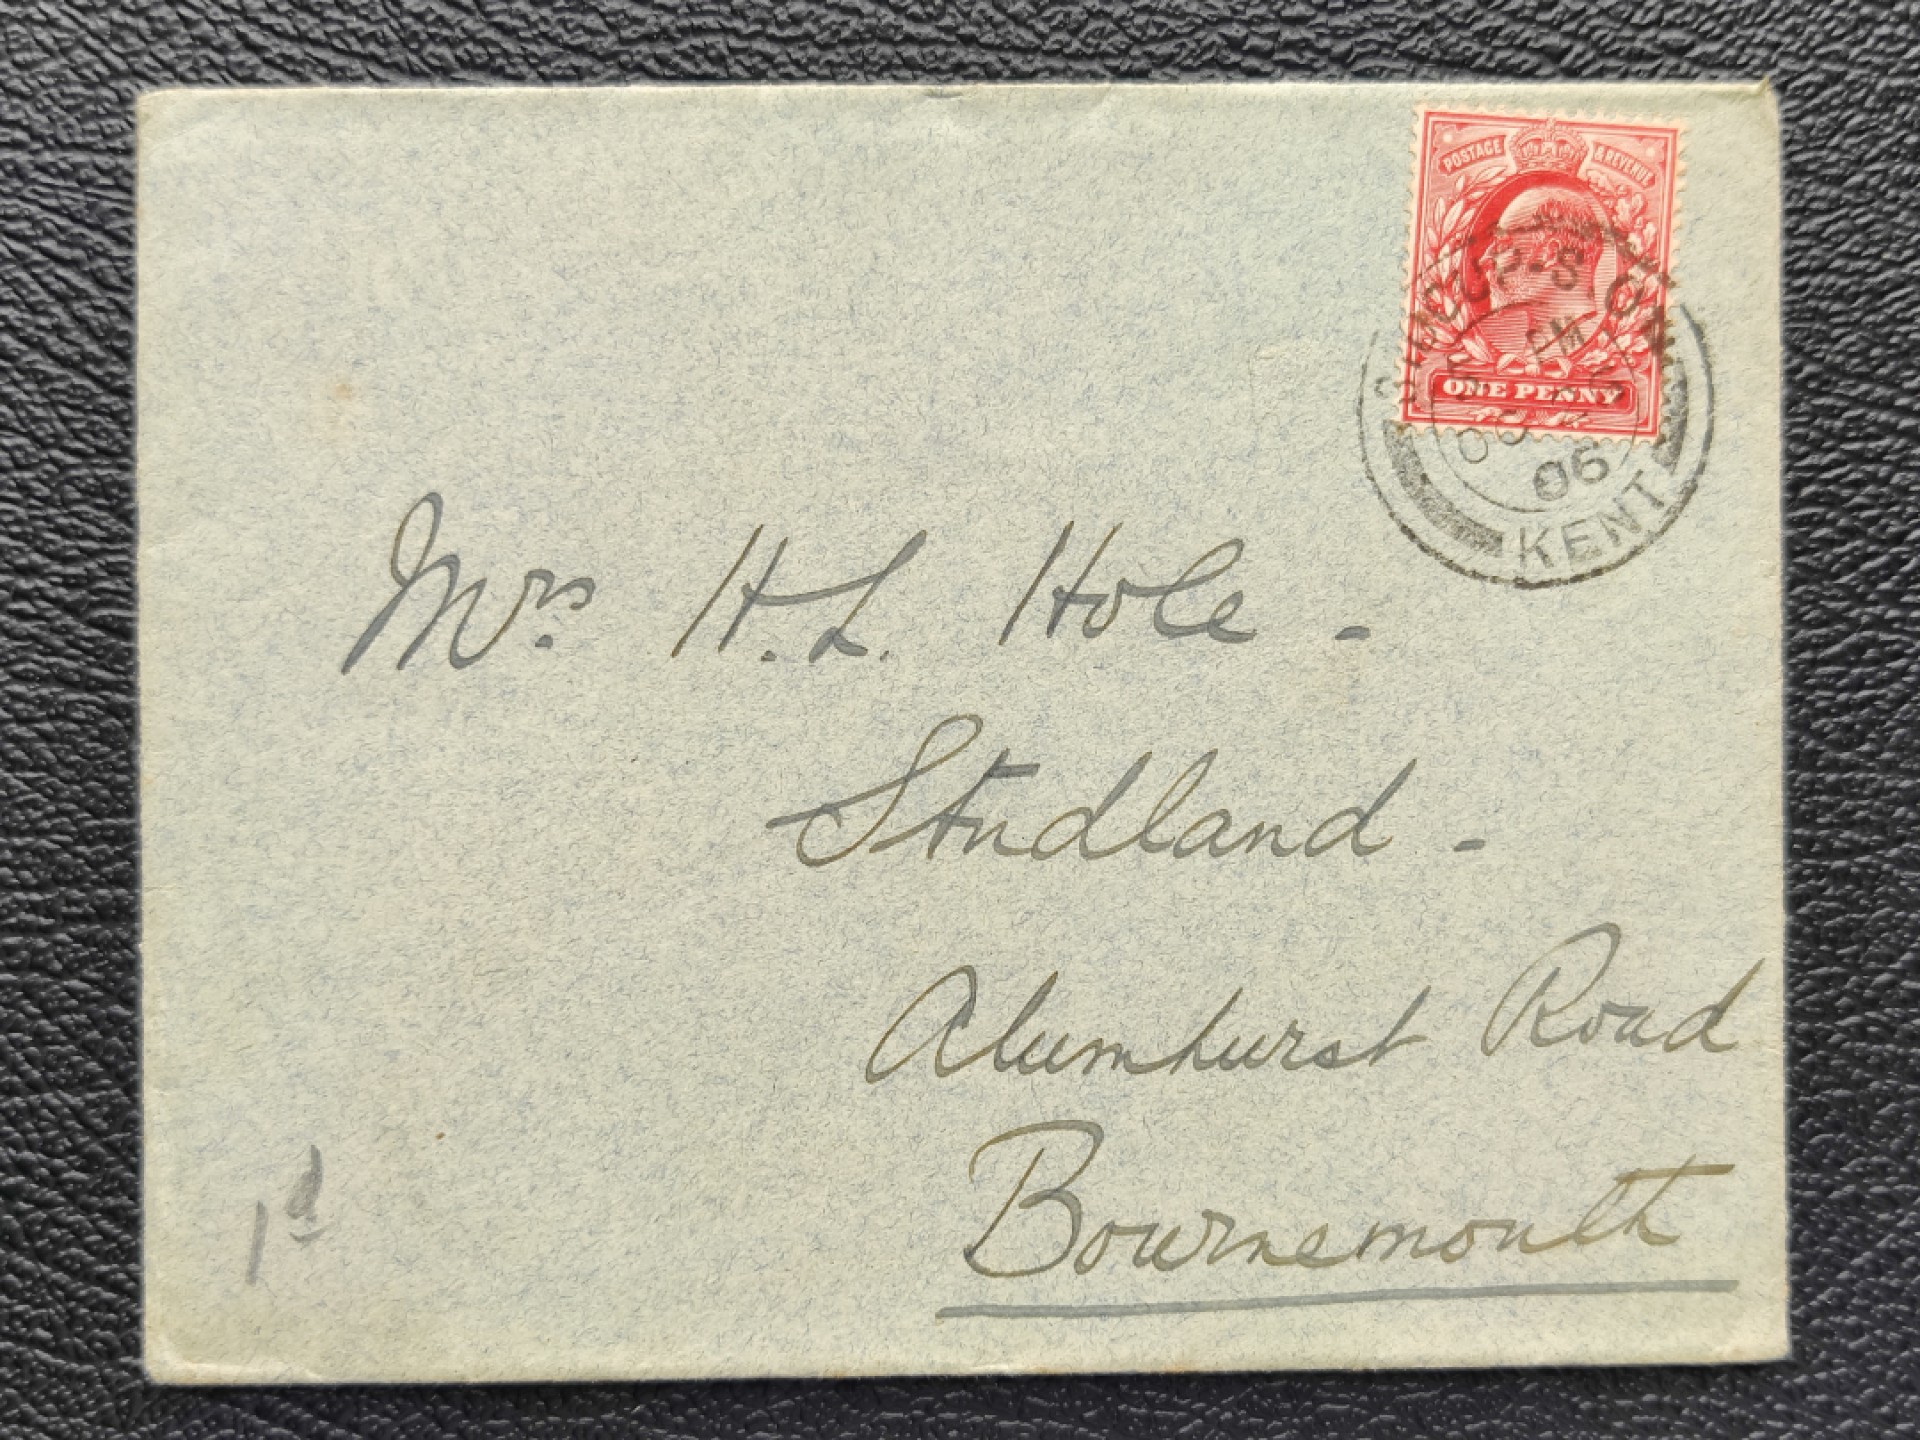 POSTAGE & REVENUE
ONE PENNY
PM
OC
06
KENT
Mrs. H. L. Hole -
Studland -
Alumhurst Road
Bournemouth
1d